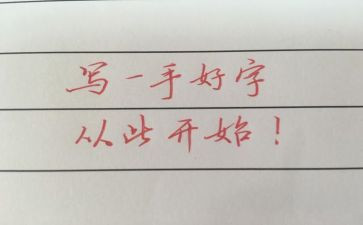 写一手好字
从此开始！